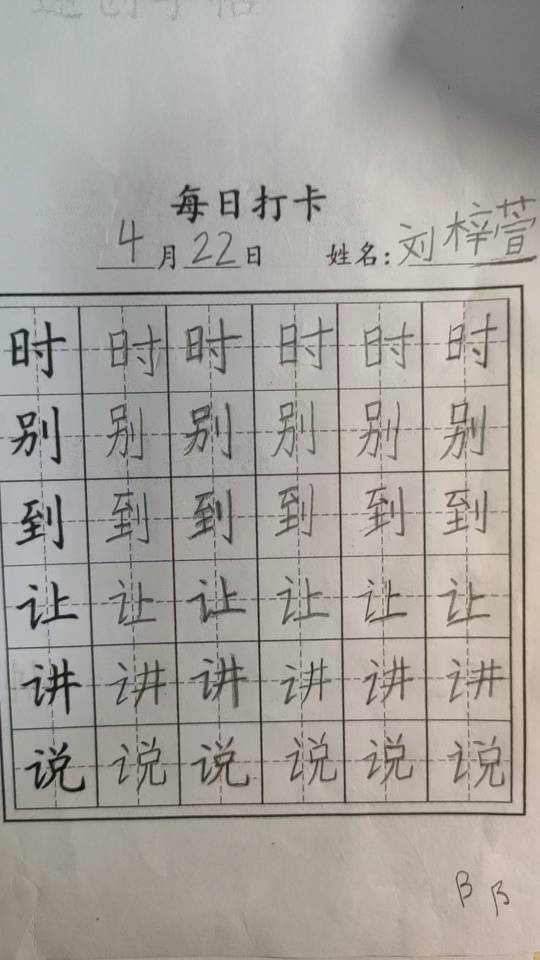 每日打卡
4月22日 姓名:刘梓萱
时 时 时 时 时 时
别 别 别 别 别 别
到 到 到 到 到 到
让 让 让 让 让 让
讲 讲 讲 讲 讲 讲
说 说 说 说 说 说